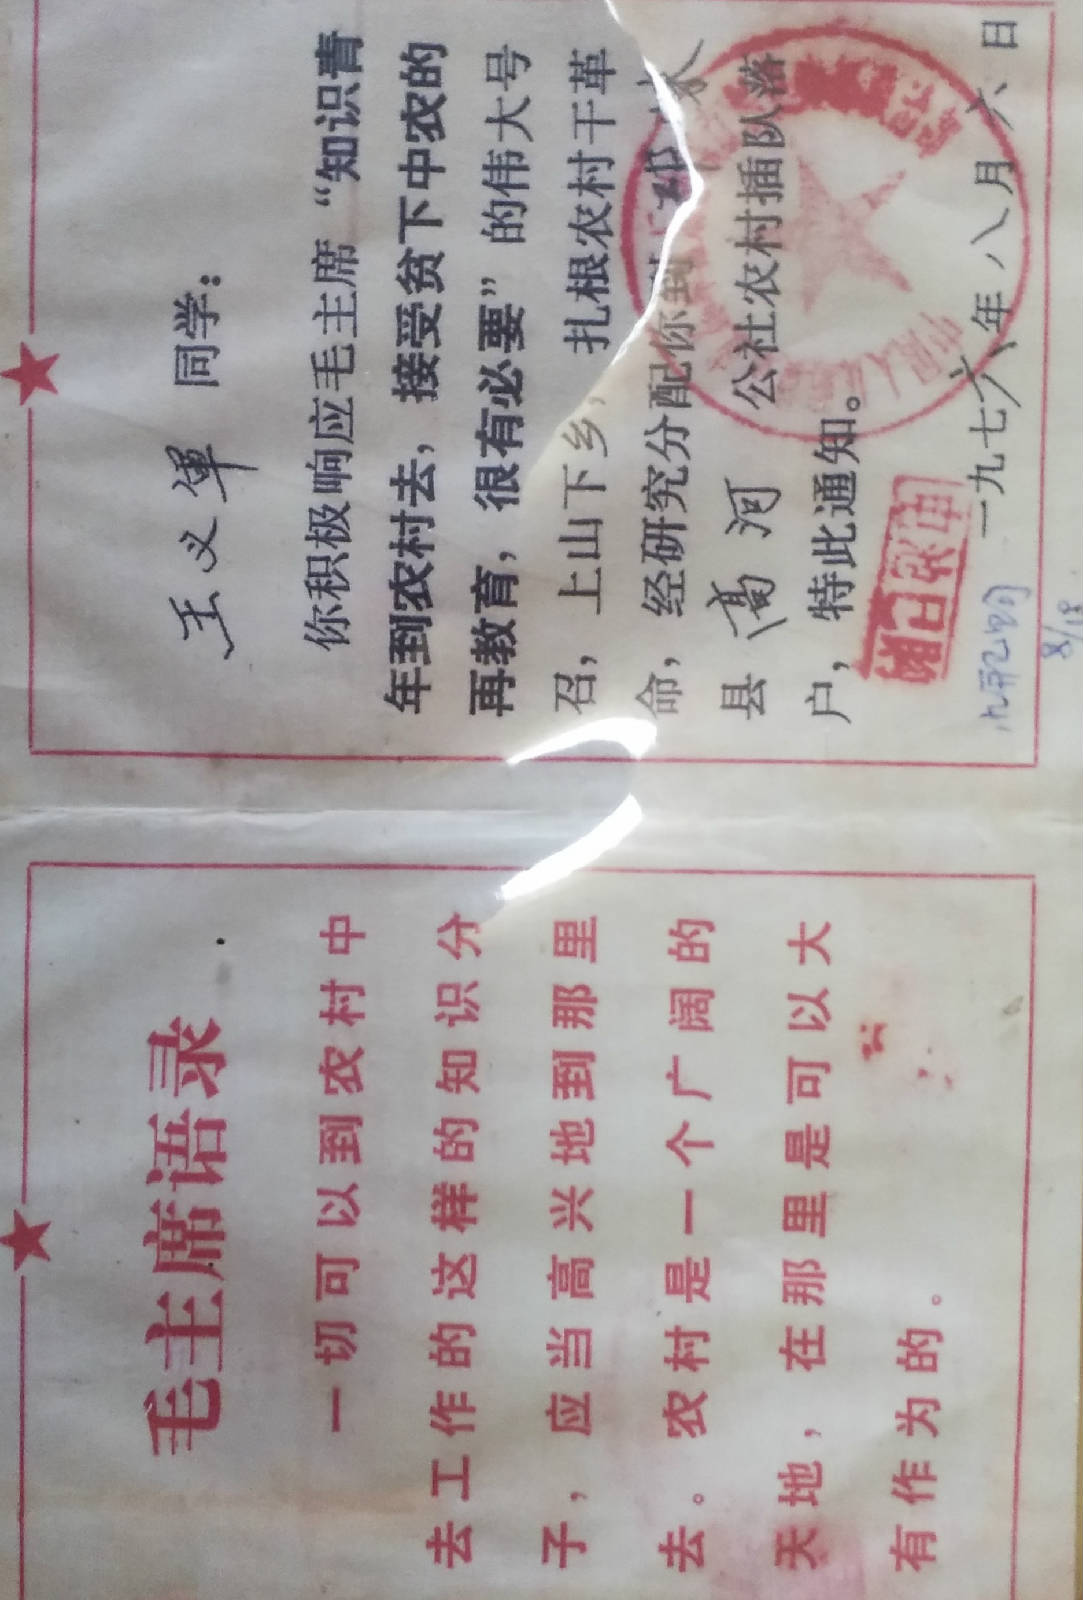 毛主席语录
一切可以到农村中
去工作的这样的知识分
子，应当高兴地到那里
去。农村是一个广阔的
天地，在那里是可以大
有作为的。
王义軍 同学：
你积极响应毛主席“知识青
年到农村去，接受贫下中农的
再教育，很有必要”的伟大号
召，上山下乡，扎根农村干革
命，经研究分配你到
县 高河 公社农村插队落
户，特此通知。
一九七六年八月六日
8/18